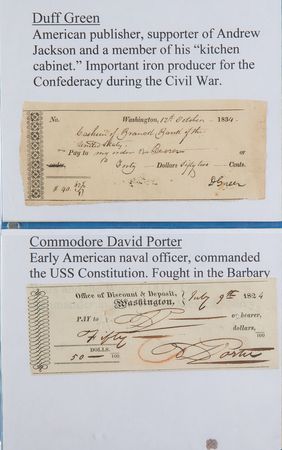 Duff Green
American publisher, supporter of Andrew
Jackson and a member of his “kitchen
cabinet.” Important iron producer for the
Confederacy during the Civil War.
No. Washington, 12th October 1834
Cashier of Branch Bank of the
United States
Pay to my order or Bearer or
Forty Dollars Fifty two Cents.
$ 40 52/100
D Green
Commodore David Porter
Early American naval officer, commanded
the USS Constitution. Fought in the Barbary
Office of Discount & Deposit,
Washington, July 9th 1824
PAY to or bearer,
Fifty dollars,
DOLLS.
50 — 100
D Porter